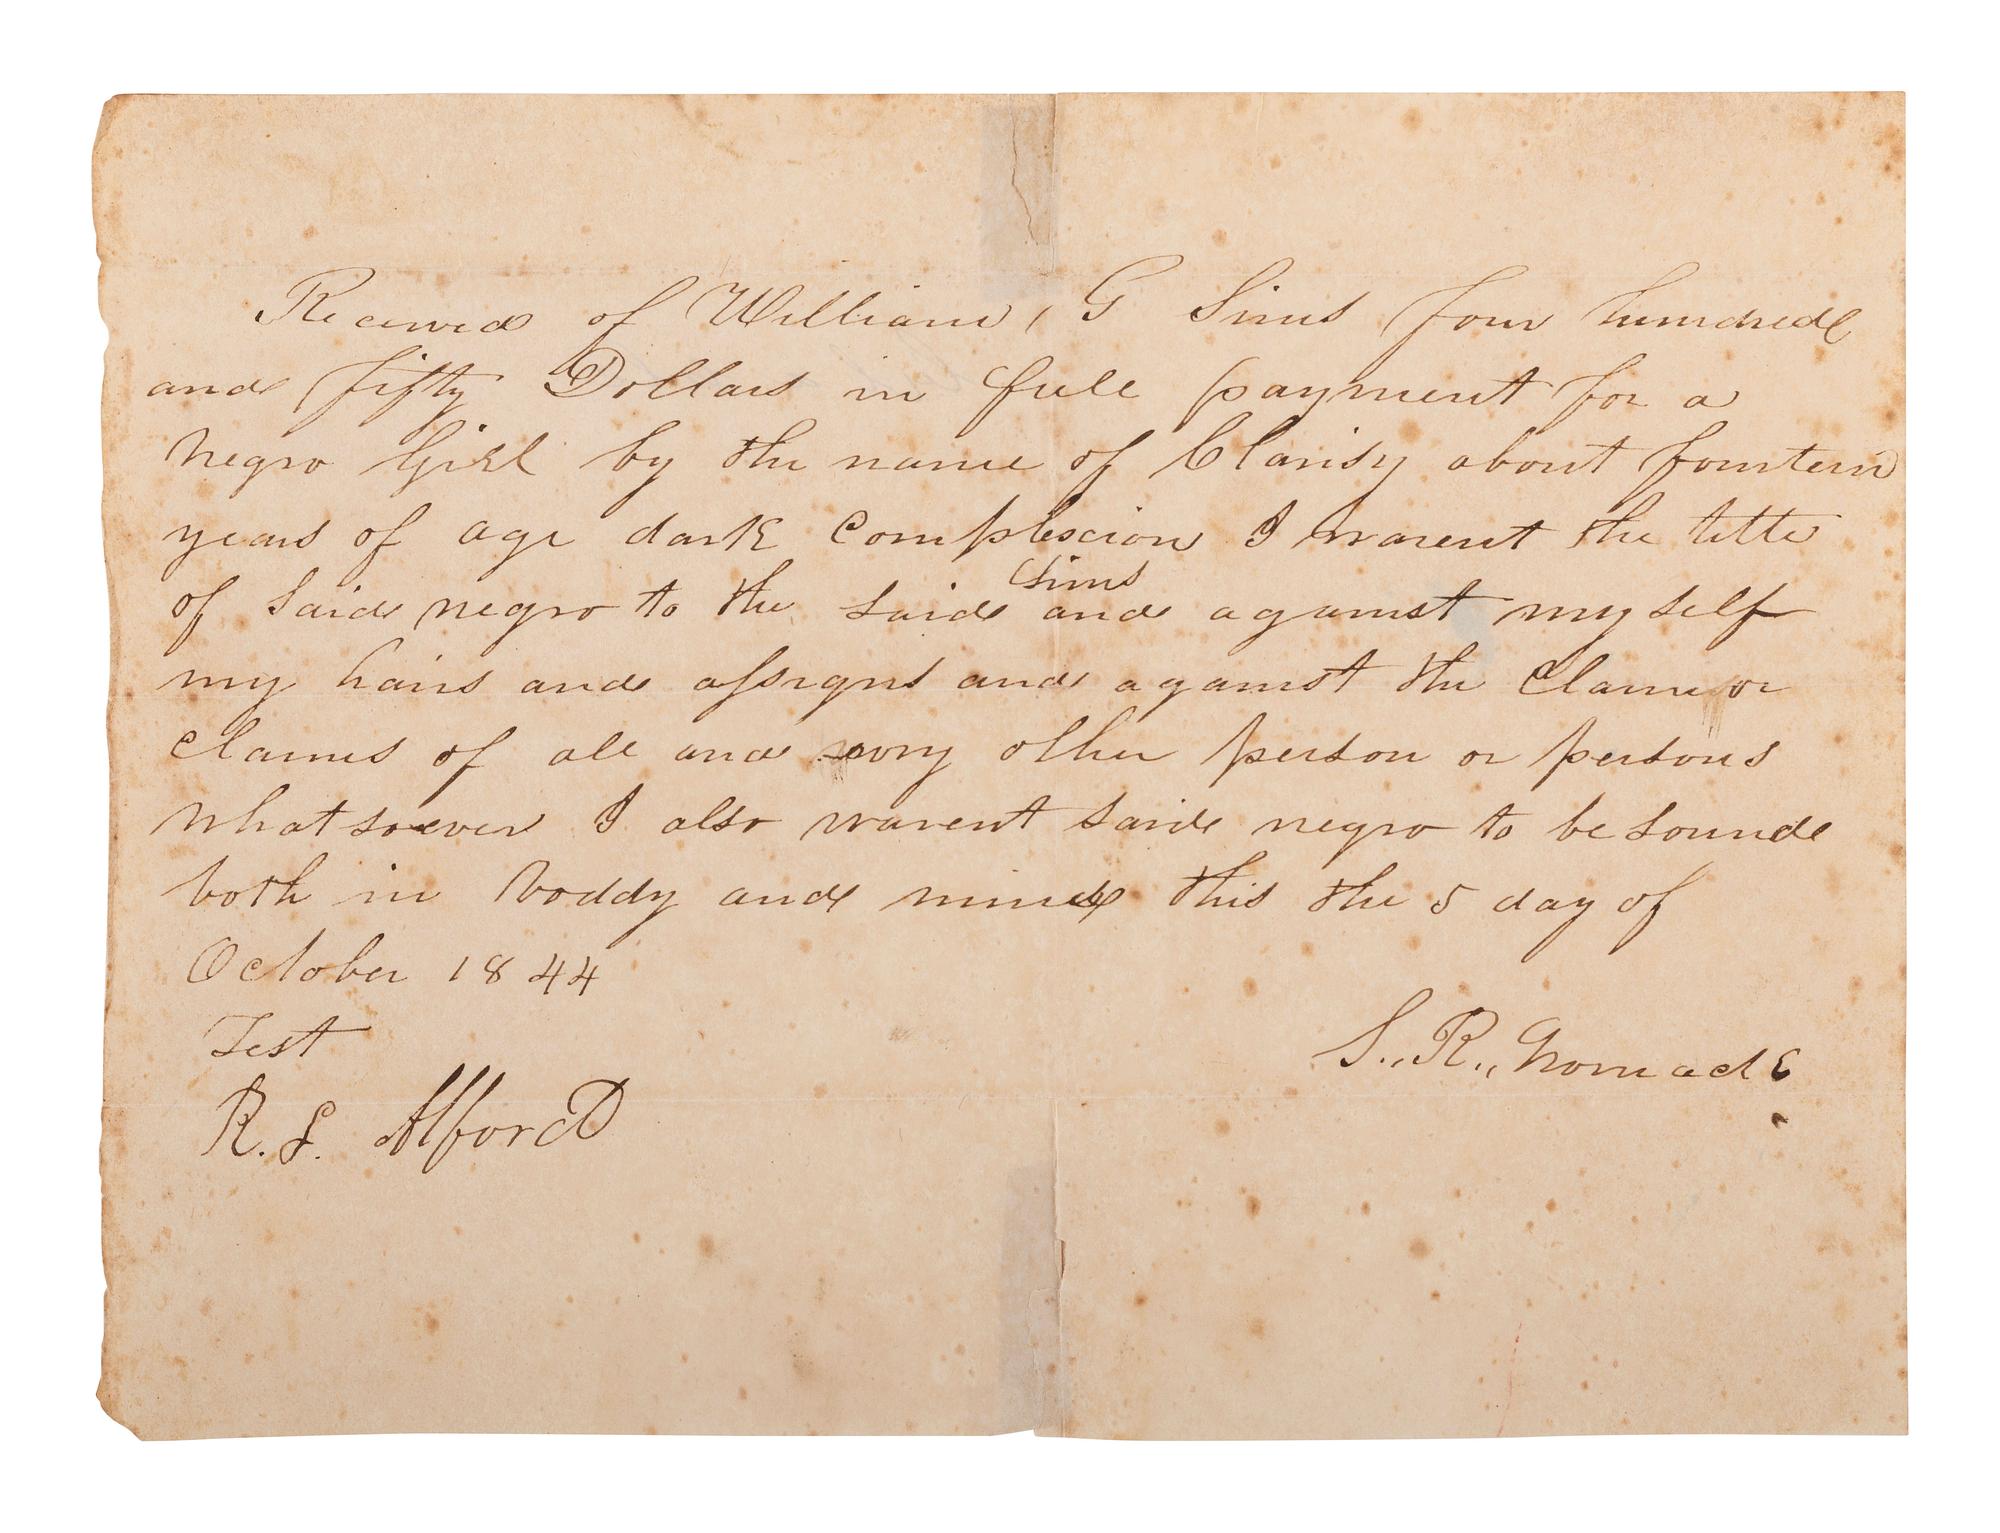 Received of William, G Sims four humdred
and fifty Dollars in full payment for a
negro Girl by the name of Clarisy about fourteen
years of age dark Complexion I warent the title
of said negro to the said Sims and against my self
my hairs and assigns and against the Clame or
Clames of all and every other person or persons
whatsoever I also warent said negro to be sound
both in boddy and mind this the 5 day of
October 1844
Test
S., R.,
R. L. Alford